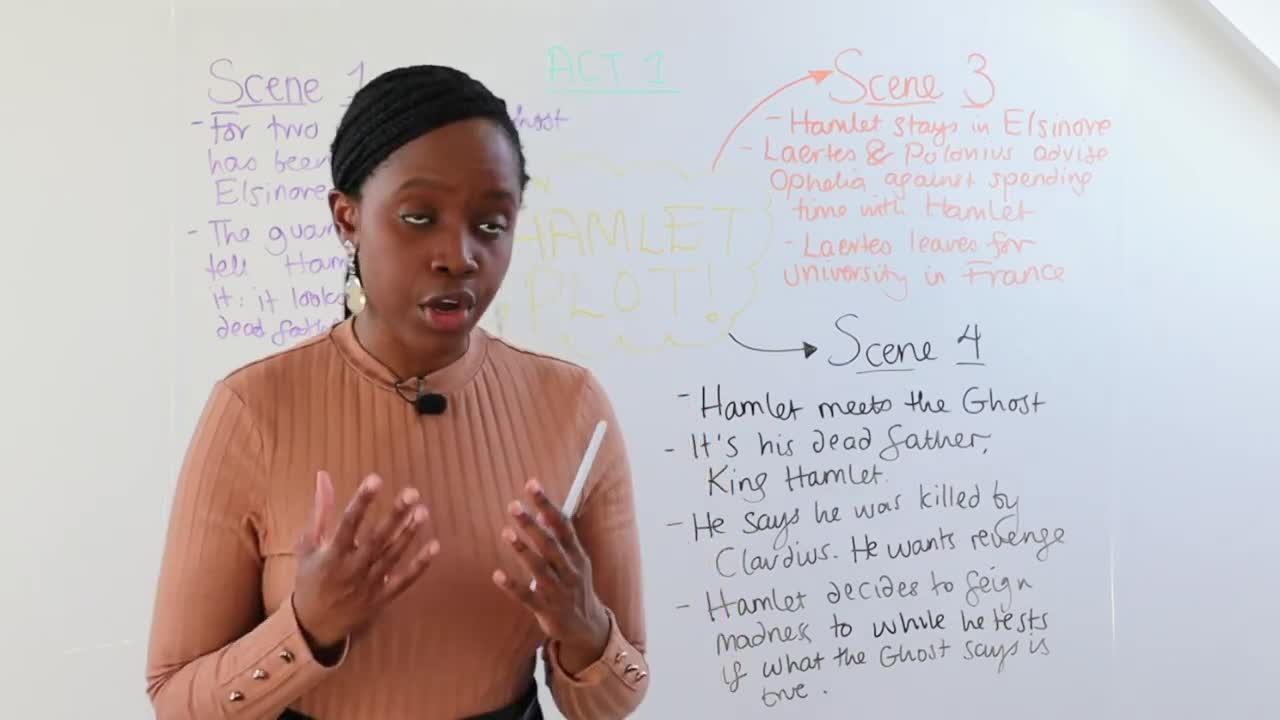 ACT 1
Scene 1
- For two
has been
Elsinore
- The guar
tell Ham
it: it looks
dead fathe
host
HAMLET
PLOT!
Scene 3
- Hamlet stays in Elsinore
- Laertes & Polonius advise
Ophelia against spending
time with Hamlet
- Laertes leaves for
university in France
Scene 4
- Hamlet meets the Ghost
- It's his dead father,
King Hamlet.
- He says he was killed by
Claudius. He wants revenge
- Hamlet decides to feign
madness to while he tests
if what the Ghost says is
true.